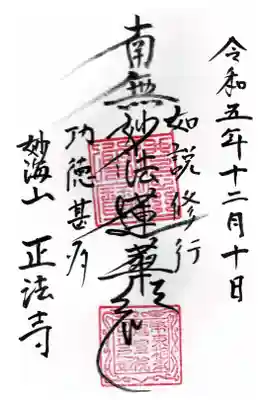 令和五年十二月十日
如説修行
南無妙法蓮華経
功徳甚多
妙海山 正法寺